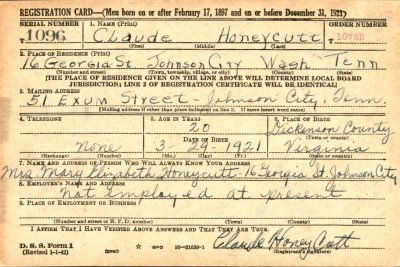 REGISTRATION CARD—(Men born on or after February 17, 1897 and on or before December 31, 1921)
SERIAL NUMBER 1. NAME (Print) ORDER NUMBER
1096 Claude Honeycutt 10765
(First) (Middle) (Last)
2. PLACE OF RESIDENCE (Print)
16 Georgia St. Johnson City Wash Tenn
(Number and street) (Town, township, village, or city) (County) (State)
[THE PLACE OF RESIDENCE GIVEN ON THE LINE ABOVE WILL DETERMINE LOCAL BOARD
JURISDICTION; LINE 2 OF REGISTRATION CERTIFICATE WILL BE IDENTICAL]
3. MAILING ADDRESS
51 Exum Street Johnson City, Tenn.
[Mailing address if other than place indicated on line 2. If same insert word same]
4. TELEPHONE 5. AGE IN YEARS 6. PLACE OF BIRTH
20 Dickenson County
DATE OF BIRTH (Town or county)
None 3-29-1921 Virginia
(Exchange) (Number) (Mo.) (Day) (Yr.) (State or country)
7. NAME AND ADDRESS OF PERSON WHO WILL ALWAYS KNOW YOUR ADDRESS
Mrs. Mary Elizabeth Honeycutt-16 Georgia St. Johnson City
8. EMPLOYER'S NAME AND ADDRESS
Not employed at present
9. PLACE OF EMPLOYMENT OR BUSINESS
(Number and street or R. F. D. number) (Town) (County) (State)
I AFFIRM THAT I HAVE VERIFIED ABOVE ANSWERS AND THAT THEY ARE TRUE.
D. S. S. Form 1
(Revised 1-1-42) GPO 16—21630-1 Claude Honeycutt